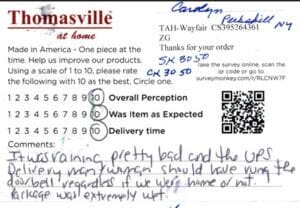 Thomasville
at home
Carolyn
Peekskill NY
TAH-Wayfair CS395264361
ZG
Thanks for your order
SK 30 50
CK 30 50
Made in America - One piece at the
time. Help us improve our products.
Using a scale of 1 to 10, please rate
the following with 10 as the best. Circle one.
take the survey online, scan the
or code or go to
surveymonkey.com/r/RLCNW7F
1 2 3 4 5 6 7 8 9 10 Overall Perception
1 2 3 4 5 6 7 8 9 10 Was Item as Expected
1 2 3 4 5 6 7 8 9 10 Delivery time
Comments:
It was raining pretty bad and the UPS
Delivery man/woman should have rung the
doorbell regardless if we were home or not.
Package was extremely wet.